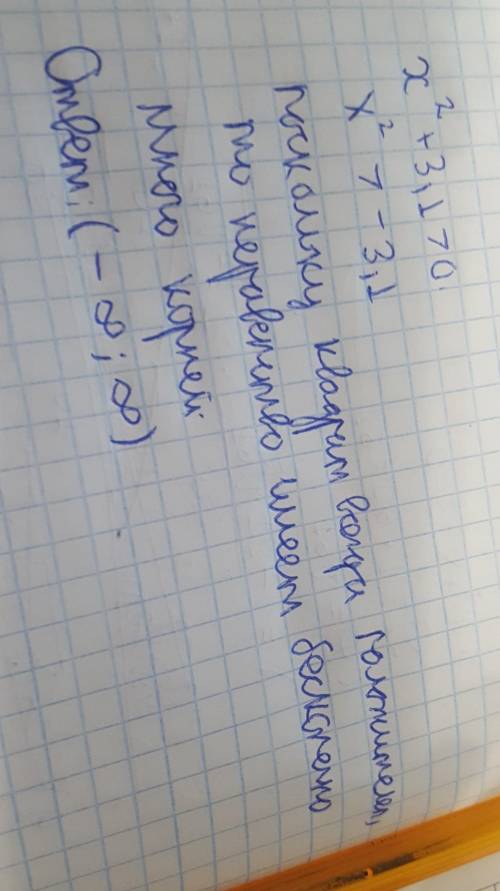 x² + 3,1 > 0.
x² > - 3,1
поскольку квадрат всегда положителен,
то неравенство имеет бесконечно
много корней.
Ответ: (- ∞ ; ∞)